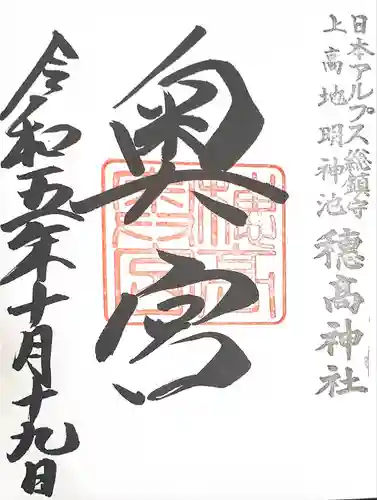 日本アルプス総鎮守
上高地明神池 穂高神社
奥宮
令和五年十月十九日